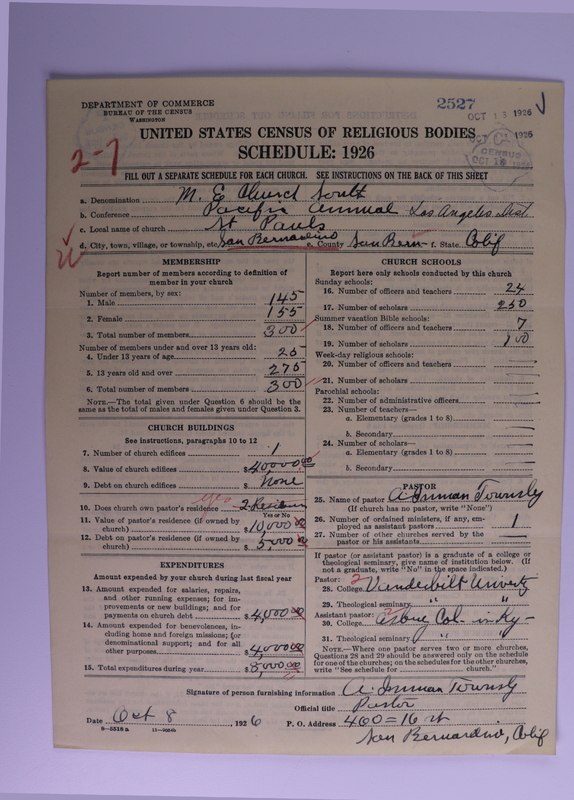 DEPARTMENT OF COMMERCE
BUREAU OF THE CENSUS
WASHINGTON
2527
OCT 13 1926
1926
CENSUS
2-7
UNITED STATES CENSUS OF RELIGIOUS BODIES
SCHEDULE: 1926
FILL OUT A SEPARATE SCHEDULE FOR EACH CHURCH. SEE INSTRUCTIONS ON THE BACK OF THIS SHEET
a. Denomination M. E. Church South
b. Conference Pacific Annual Los Angeles Dist.
c. Local name of church St Pauls
d. City, town, village, or township, etc. San Bernardino e. County San Bern f. State Calif
MEMBERSHIP
Report number of members according to definition of
member in your church
Number of members, by sex:
1. Male 145
2. Female 155
3. Total number of members 300
Number of members under and over 13 years old:
4. Under 13 years of age 25
5. 13 years old and over 275
6. Total number of members 300
NOTE.—The total given under Question 6 should be the
same as the total of males and females given under Question 3.
CHURCH BUILDINGS
See instructions, paragraphs 10 to 12
7. Number of church edifices 1
8. Value of church edifices $40000.00
9. Debt on church edifices $ None
yes
10. Does church own pastor's residence 2
Yes or No
11. Value of pastor's residence (if owned by
church) $10,000
12. Debt on pastor's residence (if owned by
church) $5,000
EXPENDITURES
Amount expended by your church during last fiscal year
13. For salaries, repairs,
and other running expenses; for im-
provements or new buildings; and for
payments on church debt $4,000.00
14. Amount expended for benevolences, in-
cluding home and foreign missions; for
denominational support; and for all
other purposes $4000.00
15. Total expenditures during year $8,000.00
CHURCH SCHOOLS
Report here only schools conducted by this church
Sunday schools:
16. Number of officers and teachers 24
17. Number of scholars 250
Summer vacation Bible schools:
18. Number of officers and teachers 7
19. Number of scholars 100
Week-day religious schools:
20. Number of officers and teachers
21. Number of scholars
Parochial schools:
22. Number of administrative officers
23. Number of teachers—
a. Elementary (grades 1 to 8)
b. Secondary
24. Number of scholars—
a. Elementary (grades 1 to 8)
b. Secondary
PASTOR
25. Name of pastor A. Inman Townsly
(If church has no pastor, write "None")
26. Number of ordained ministers, if any, em-
ployed as assistant pastors 1
27. Number of other churches served by the
pastor or his assistants
If pastor (or assistant pastor) is a graduate of a college or
theological seminary, give name of institution below. (If
not a graduate, write "No" in the space indicated.)
Pastor: 2
28. College Vanderbilt
29. Theological seminary " "
Assistant pastor: 2
30. College Col- in Ky-
31. Theological seminary " "
NOTE.—Where one pastor serves two or more churches,
Questions 28 and 29 should be answered only on the schedule
for one of the churches; on the schedules for the other churches,
write "See schedule for church."
Signature of person furnishing information A. Inman Townsly
Official title Pastor
Date Oct 8, 1926 P. O. Address 460=16 st
San Bernardino, Calif